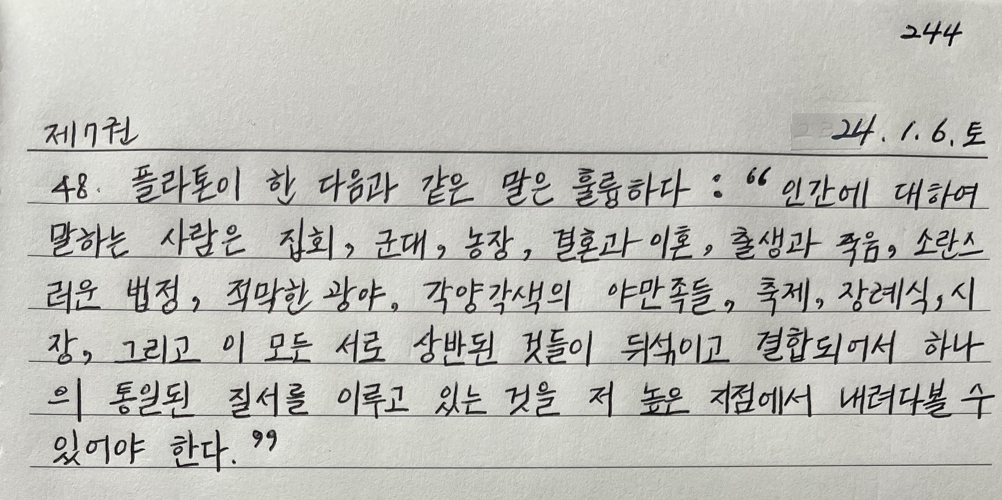 244
제7권 24. 1. 6. 토
48. 플라톤이 한 다음과 같은 말은 훌륭하다 : “ 인간에 대하여
말하는 사람은 집회, 군대, 농장, 결혼과 이혼, 출생과 죽음, 소란스
러운 법정, 적막한 광야, 각양각색의 야만족들, 축제, 장례식, 시
장, 그리고 이 모든 서로 상반된 것들이 뒤섞이고 결합되어서 하나
의 통일된 질서를 이루고 있는 것을 저 높은 지점에서 내려다볼 수
있어야 한다. ”